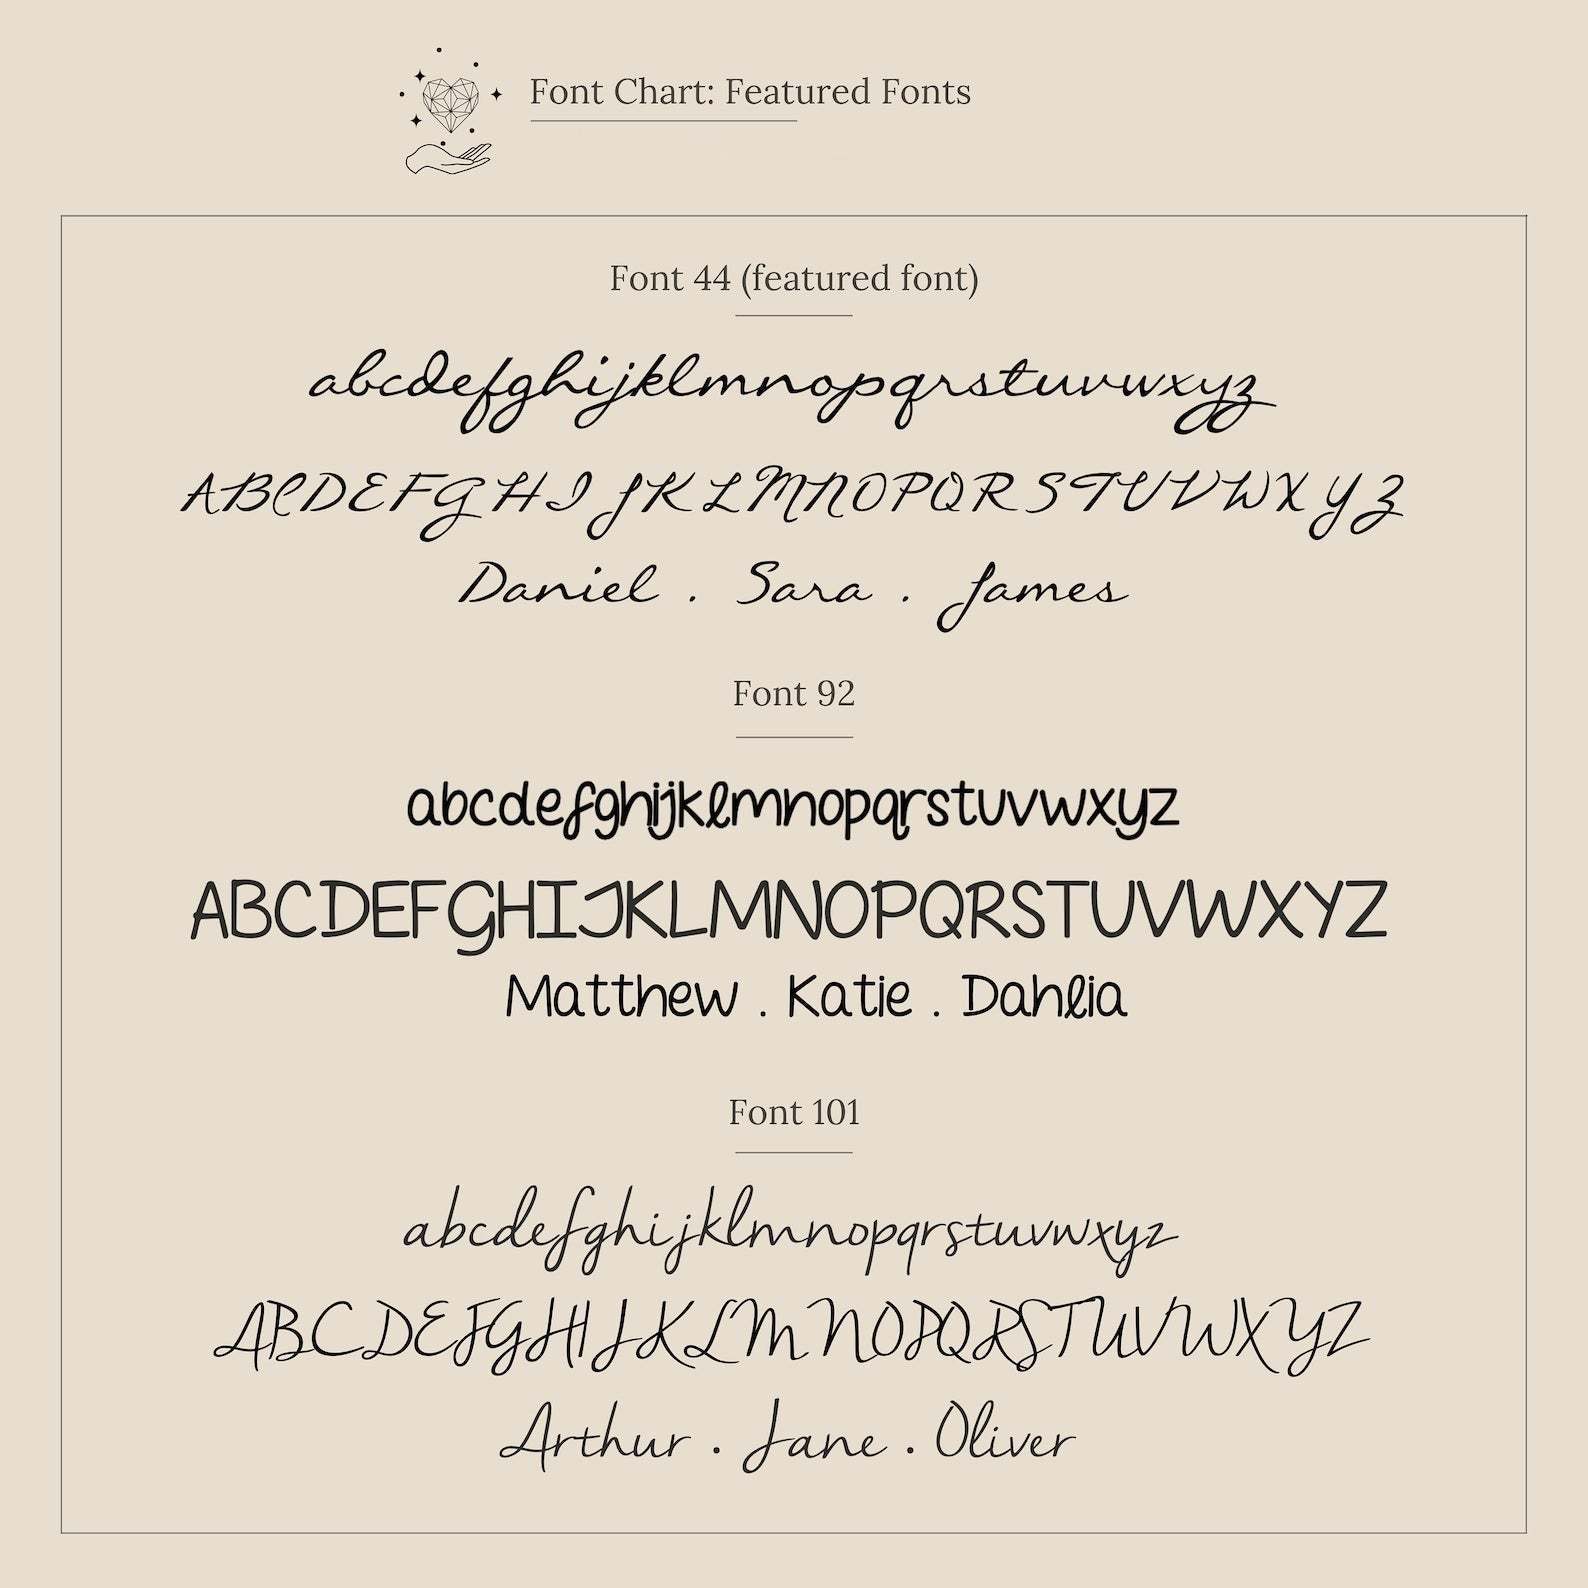 Font Chart: Featured Fonts
Font 44 (featured font)
abcdefghijklmnopqrstuvwxyz
ABCDEFGHIJKLMNOPQRSTUVWXYZ
Daniel . Sara . James
Font 92
abcdefghijklmnopqrstuvwxyz
ABCDEFGHIJKLMNOPQRSTUVWXYZ
Matthew . Katie . Dahlia
Font 101
abcdefghijklmnopqrstuvwxyz
ABCDEFGHIJKLMNOPQRSTUVWXYZ
Arthur . Jane . Oliver